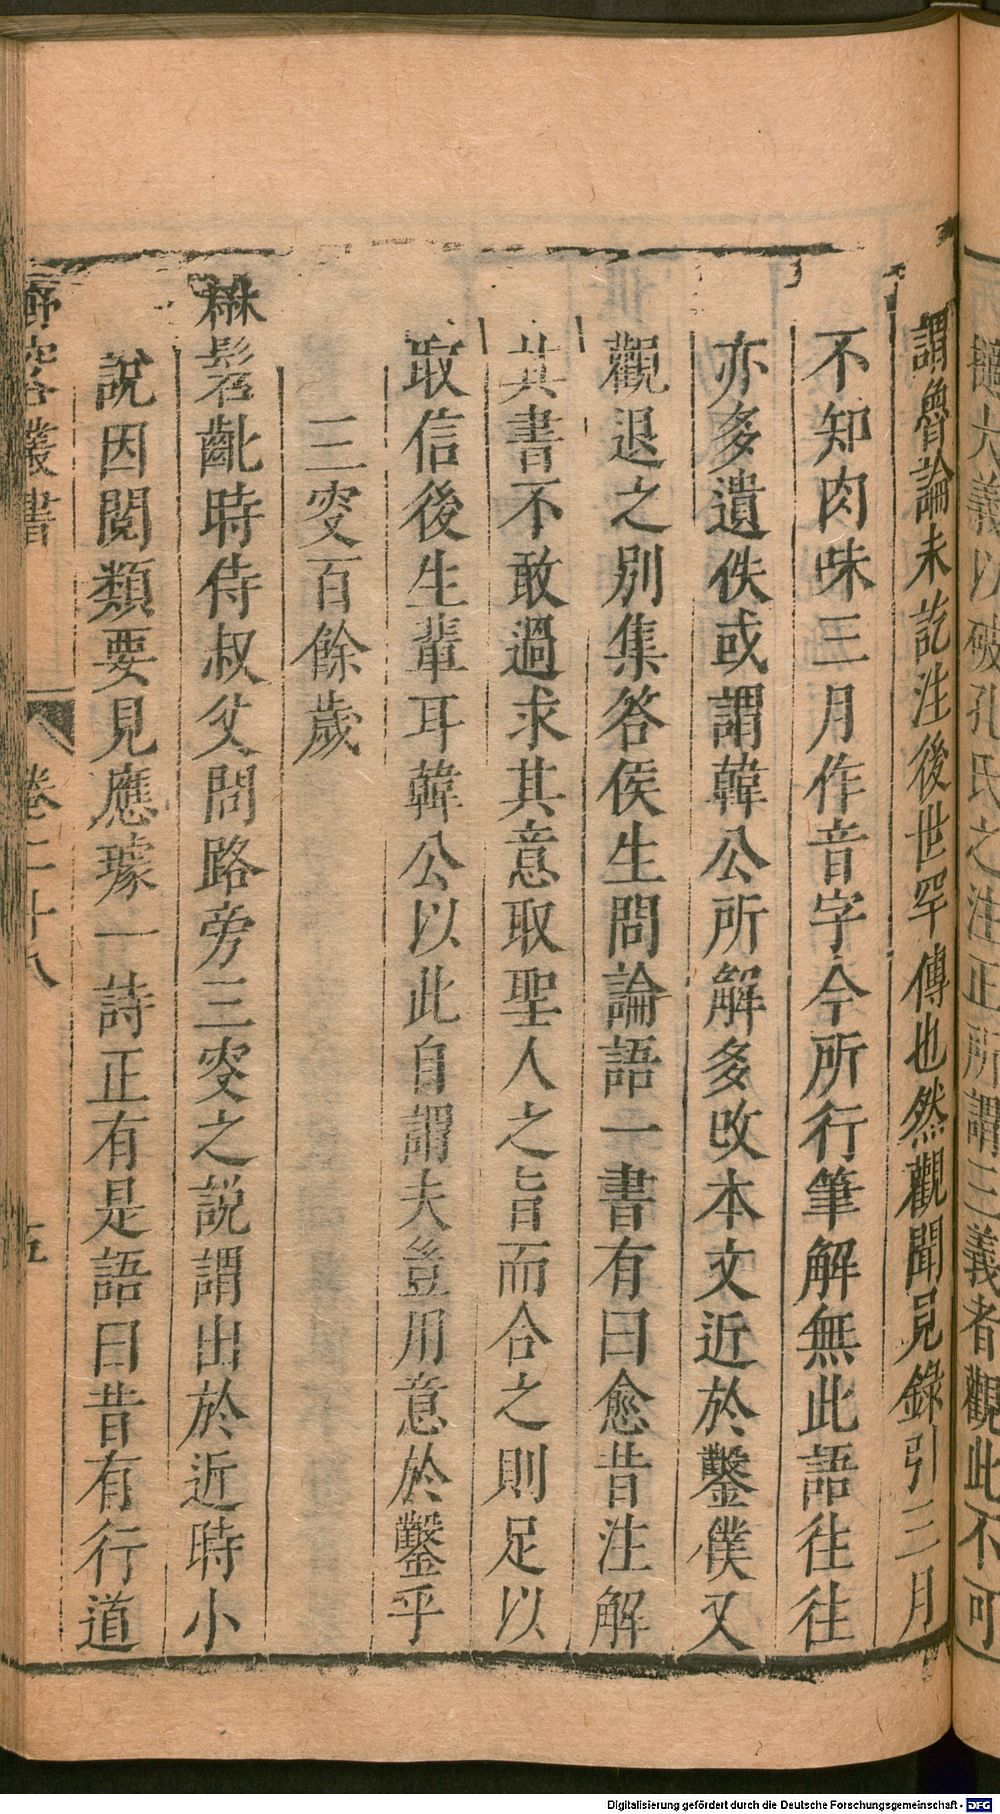 讀大義以破孔氏之注正所謂三義者觀此不可
謂魯論未訖注後世罕傳也然觀聞見錄引三月
不知肉味三月作音字今所行筆解無此語往往
亦多遺佚或謂韓公所解多改本文近於鑿僕又
觀退之別集答侯生問論語一書有曰愈昔注解
其書不敢過求其意取聖人之旨而合之則足以
取信後生輩耳韓公以此自謂夫豈用意於鑿乎
三叟百餘歲
楙髫齔時侍叔父問路旁三叟之說謂出於近時小
說因閱類要見應璩一詩正有是語曰昔有行道
野客叢書 卷二十八 五
Digitalisierung gefördert durch die Deutsche Forschungsgemeinschaft - DFG